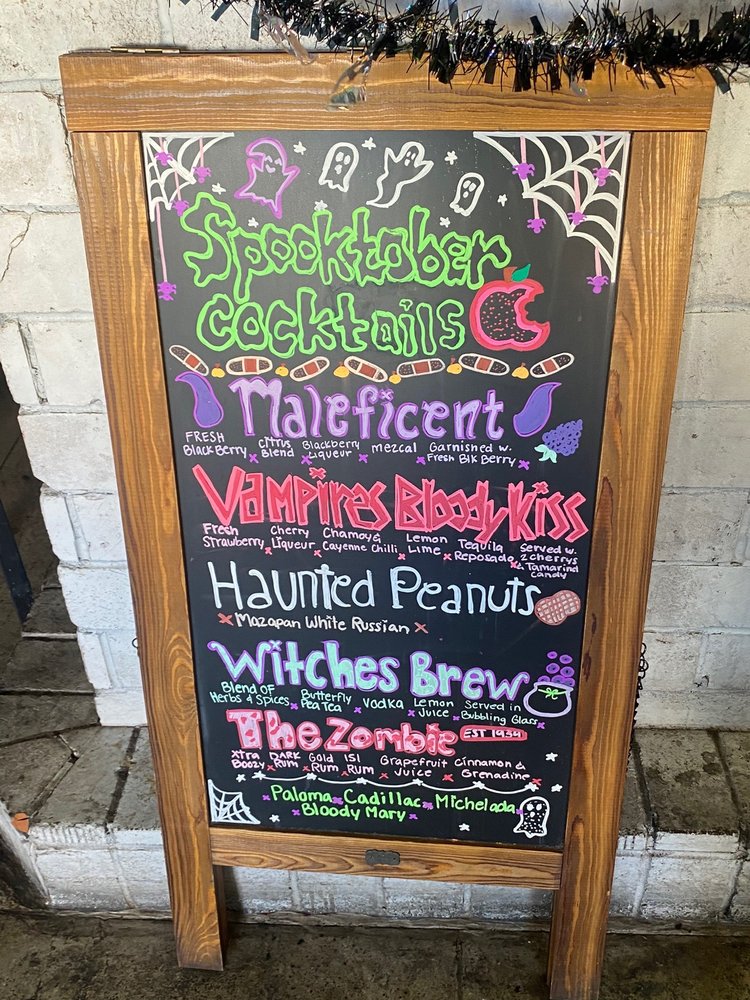 Spooktober
Cocktails
Maleficent
FRESH CITRUS Blackberry Mezcal Garnished w.
BlackBerry x Blend x Liqueur x Fresh Blk Berry x
Vampires Bloody Kiss
Fresh Cherry Chamoy & Lemon Tequila Served w.
Strawberry x Liqueur x Cayenne Chilli x Lime x Reposado x 2 cherrys
& Tamarind
Candy
Haunted Peanuts
x Mazapan White Russian x
Witches Brew
Blend of Butterfly Vodka Lemon Served in
Herbs & Spices x Pea Tea x Juice x Bubbling Glass x
The Zombie EST 1934
Xtra DARK Gold 151 Grapefruit Cinnamon &
Boozy x RUM x Rum x Rum x Juice x Grenadine x
Paloma x Cadillac x Michelada x
x Bloody Mary x